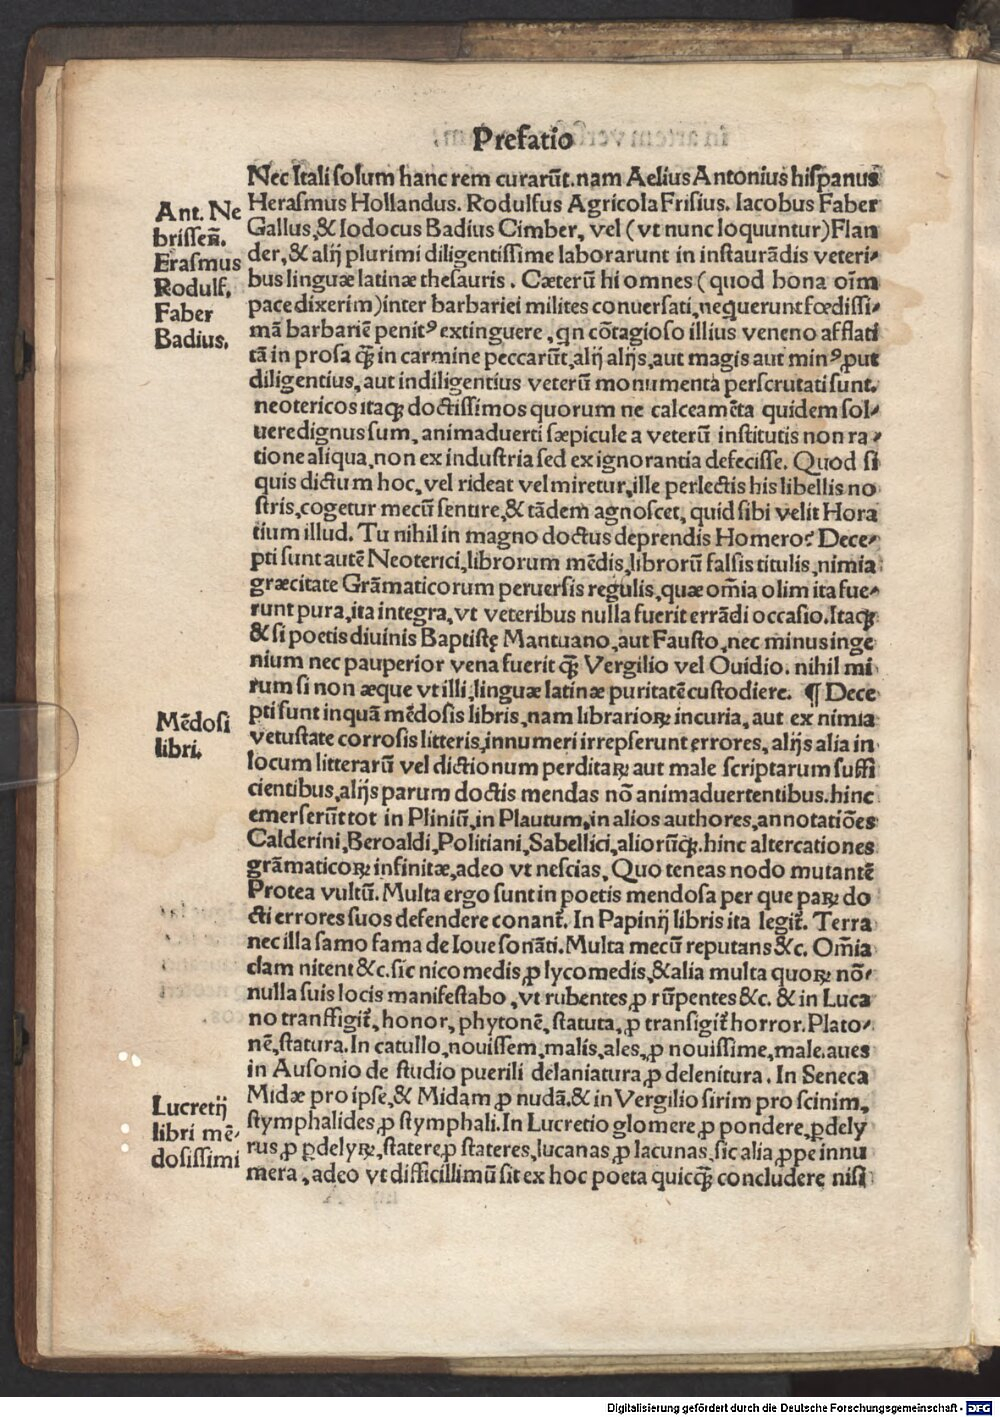 Prefatio
Nec Itali solum hanc rem curarūt. nam Aelius Antonius hispanus
Herasmus Hollandus. Rodulfus Agricola Frisius. Iacobus Faber
Gallus, & Iodocus Badius Cimber, vel (vt nunc loquuntur) Flan
der, & alij plurimi diligentissime laborarunt in instaurādis veteri⸗
bus linguæ latinæ thesauris. Cæterū hi omnes (quod bona oīm
pace dixerim) inter barbariei milites conuersati, nequerunt fœdissi⸗
mā barbariē penitꝰ extinguere, qn cōtagioso illius veneno afflati
tā in prosa q̄ꝫ in carmine peccarūt, alij alijs, aut magis aut minꝰ, ꝓut
diligentius, aut indiligentius veterū monumenta perscrutati sunt.
neotericos itaqꝫ doctissimos quorum ne calceamēta quidem sol⸗
uere dignus sum, animaduerti sæpicule a veterū institutis non ra⸗
tione aliqua, non ex industria sed ex ignorantia defecisse. Quod si
quis dictum hoc, vel rideat vel miretur, ille perlectis his libellis no
stris, cogetur mecū sentire, & tādem agnoscet, quid sibi velit Hora
tium illud. Tu nihil in magno doctus deprendis Homero? Dece⸗
pti sunt autē Neoterici, librorum mēdis, librorū falsis titulis, nimia
græcitate Grāmaticorum peruersis regulis, quæ om̄ia olim ita fue⸗
runt pura, ita integra, vt veteribus nulla fuerit errādi occasio. Itaqꝫ
& si poetis diuinis Baptistę Mantuano, aut Fausto, nec minus inge
nium nec pauperior vena fuerit q̄ꝫ Vergilio vel Ouidio. nihil mi
rum si non æque vt illi, linguæ latinæ puritatē custodiere. ¶ Dece
pti sunt inquā mēdosis libris, nam librarioꝝ incuria, aut ex nimia
vetustate corrosis litteris, innumeri irrepserunt errores, alijs alia in
locum litterarū vel dictionum perditaꝝ aut male scriptarum suffi
cientibus, alijs parum doctis mendas nō animaduertentibus. hinc
emerserūt tot in Pliniū, in Plautum, in alios authores, annotatiōes
Calderini, Beroaldi, Politiani, Sabellici, aliorūqꝫ. hinc altercationes
grāmaticoꝝ infinitæ, adeo vt nescias, Quo teneas nodo mutantē
Protea vultū. Multa ergo sunt in poetis mendosa per que paꝝ do
cti errores suos defendere conant̄. In Papinij libris ita legit̄. Terra
nec illa samo fama de Ioue sonāti. Multa mecū reputans &c. Om̄ia
clam nitent &c. sic nicomedis, ꝓ lycomedis, & alia multa quoꝝ nō⸗
nulla suis locis manifestabo, vt rubentes, ꝓ rūpentes &c. & in Luca
no transfigit̄, honor, phytonē, statuta, ꝓ transigit̄ horror. Plato⸗
nē, statura. In catullo, nouissem, malis, ales, ꝓ nouissime, male. aues
in Ausonio de studio puerili delaniatura, ꝓ delenitura. In Seneca
Midæ pro ipse, & Midam, ꝓ nudā. & in Vergilio sirim pro scinim,
stymphalides, ꝓ stymphali. In Lucretio glomere, ꝓ pondere, ꝑdely
rus, ꝓ ꝑdelyꝝ, statere, ꝓ stateres, lucanas, ꝓ lacunas, sic alia, ꝓpe innu
mera, adeo vt difficillimū sit ex hoc poeta quicq̄ꝫ concludere nisi
Ant. Ne
brissen̄.
Erasmus
Rodulf.
Faber
Badius.
Mēdosi
libri.
Lucretij
libri mē⸗
dosissimi
Digitalisierung gefördert durch die Deutsche Forschungsgemeinschaft - DFG